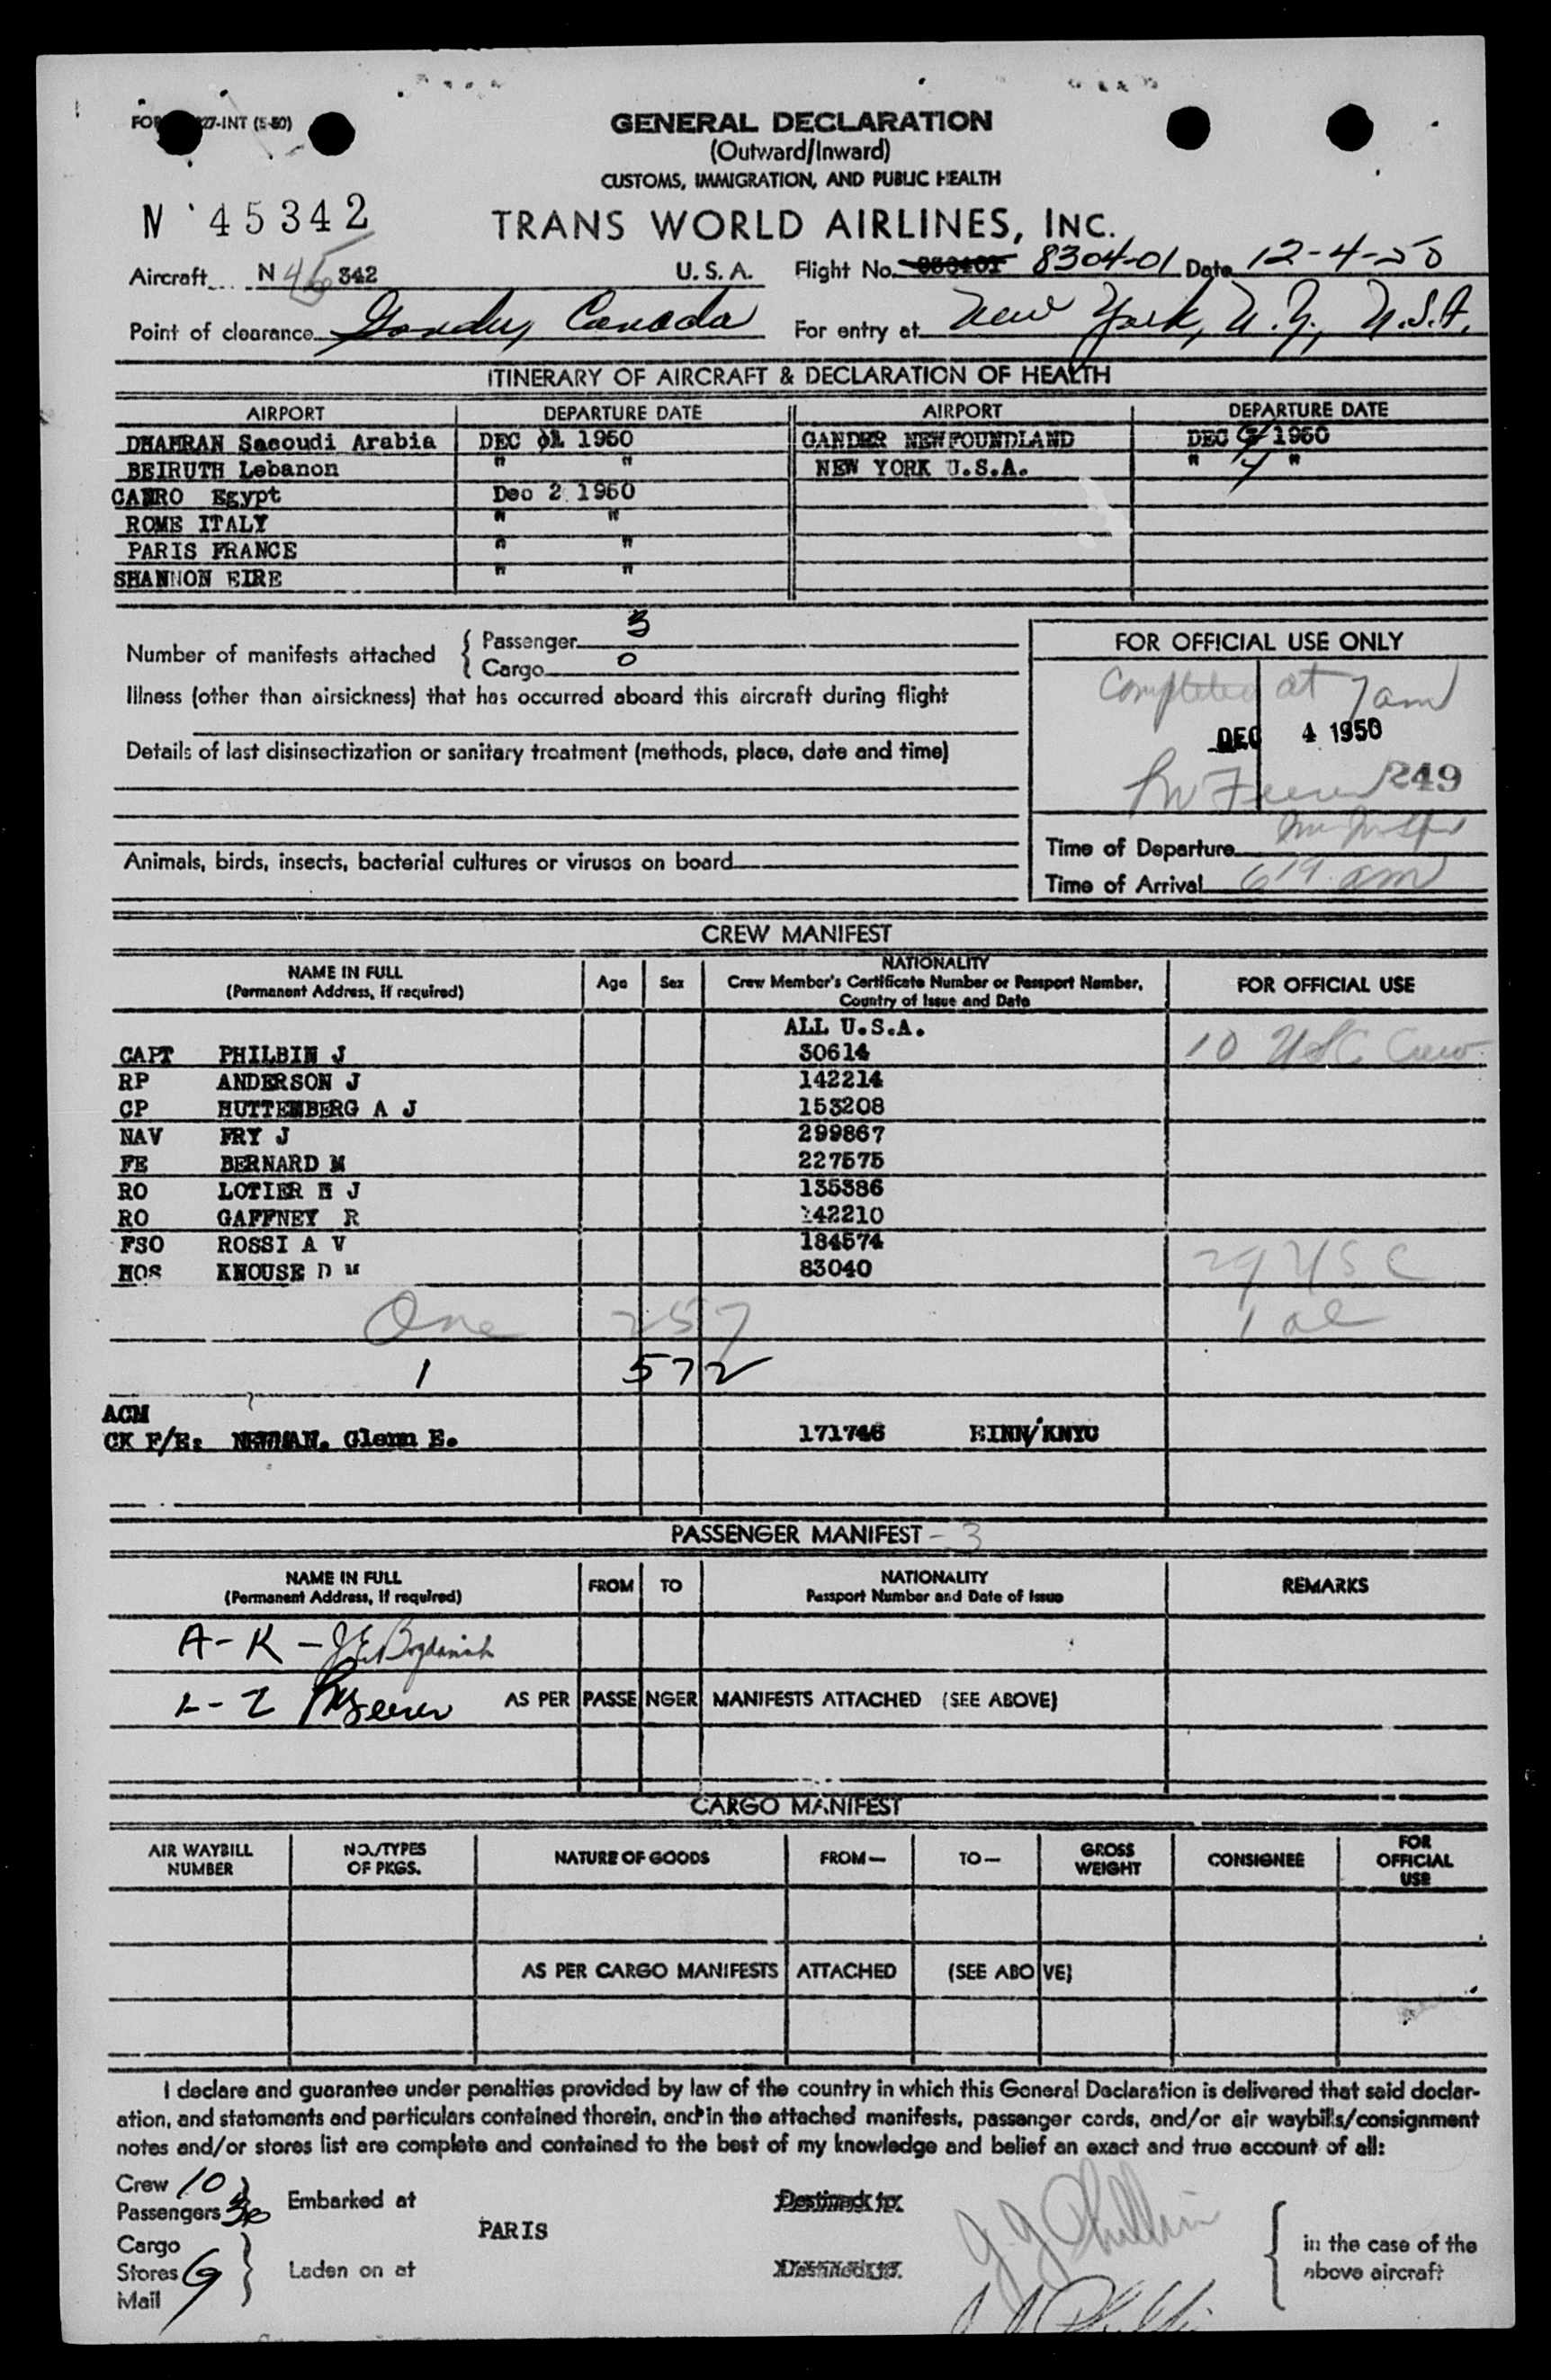 GENERAL DECLARATION
(Outward/Inward)
CUSTOMS, IMMIGRATION, AND PUBLIC HEALTH
27-INT (5-50)
N 45342
TRANS WORLD AIRLINES, INC.
Aircraft N 45 342 U. S. A. Flight No. 8304-01 Date 12-4-50
Point of clearance Gander, Canada For entry at New York, N.Y., U.S.A.
ITINERARY OF AIRCRAFT & DECLARATION OF HEALTH
AIRPORT DEPARTURE DATE AIRPORT DEPARTURE DATE
DHAHRAN Sacoudi Arabia DEC 01 1950 GANDER NEWFOUNDLAND DEC 1950
BEIRUTH Lebanon " " NEW YORK U.S.A. " 4 "
CAIRO Egypt Dec 2 1950
ROME ITALY " "
PARIS FRANCE " "
SHANNON EIRE " "
Number of manifests attached { Passenger 3
Cargo 0
Illness (other than airsickness) that has occurred aboard this aircraft during flight
Details of last disinsectization or sanitary treatment (methods, place, date and time)
Animals, birds, insects, bacterial cultures or viruses on board
FOR OFFICIAL USE ONLY
Completed at 7 am
DEC 4 1950
249
Time of Departure
Time of Arrival 6 19 am
CREW MANIFEST
NAME IN FULL
(Permanent Address, if required)
Age Sex
NATIONALITY
Crew Member's Certificate Number or Passport Number,
Country of Issue and Date
FOR OFFICIAL USE
ALL U.S.A.
CAPT PHILBIN J 30614 10 USC Crew
RP ANDERSON J 142214
CP HUTTENBERG A J 153208
NAV FRY J 299867
FE BERNARD M 227575
RO LOTIER H J 135386
RO GAFFNEY R 142210
FSO ROSSI A V 184574
HOS KNOUSE D M 83040 29 USC
One 257 1 al
1 572
ACM
CK F/E: NEWMAN, Glenn E. 171746 EINN/KNYC
PASSENGER MANIFEST - 3
NAME IN FULL
(Permanent Address, if required)
FROM TO
NATIONALITY
Passport Number and Date of Issue
REMARKS
A-K - J E Bogdanich
L-Z AS PER PASSENGER MANIFESTS ATTACHED (SEE ABOVE)
CARGO MANIFEST
AIR WAYBILL NUMBER
NO./TYPES OF PKGS.
NATURE OF GOODS
FROM—
TO—
GROSS WEIGHT
CONSIGNEE
FOR OFFICIAL USE
AS PER CARGO MANIFESTS ATTACHED (SEE ABOVE)
I declare and guarantee under penalties provided by law of the country in which this General Declaration is delivered that said declar-
ation, and statements and particulars contained therein, and in the attached manifests, passenger cards, and/or air waybills/consignment
notes and/or stores list are complete and contained to the best of my knowledge and belief an exact and true account of all:
Crew 10
Passengers 30 Embarked at Destined to:
PARIS
J. J. Philbin
Cargo
Stores Laden on at
Mail
in the case of the
above aircraft
J J Philbin